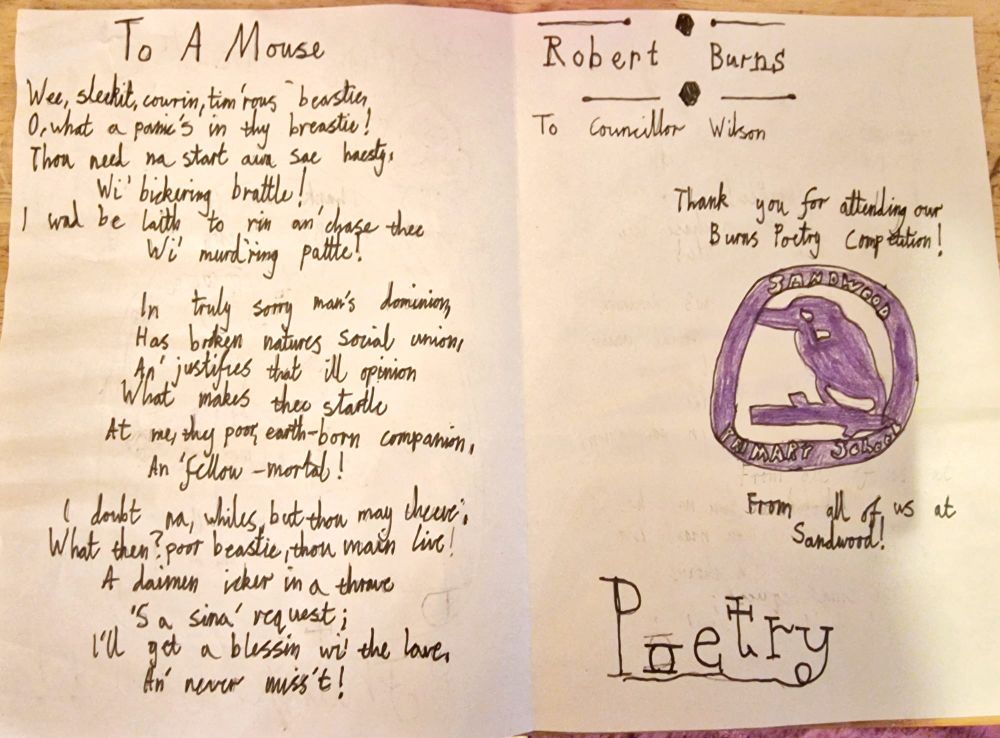 To A Mouse
Wee, sleekit, courin, tim'rous beastie,
O, what a panic's in thy breastie!
Thou need na start awa sae haesty,
Wi' bickering brattle!
I wad be laith to rin an' chase thee
Wi' murd'ring pattle!
In truly sorry man's dominion,
Has broken natures social union,
An' justifies that ill opinion
What makes thee startle
At me, thy poor, earth-born companion,
An' fellow-mortal!
I doubt na, whiles, but thou may theeve;
What then? poor beastie, thou maun live!
A daimen icker in a thrave
'S a sma' request;
I'll get a blessin wi' the lave,
An' never miss't!
Robert Burns
To Councillor Wilson
Thank you for attending our
Burns Poetry Competition!
SANDWOOD
PRIMARY SCHOOL
From all of us at
Sandwood!
Poetry